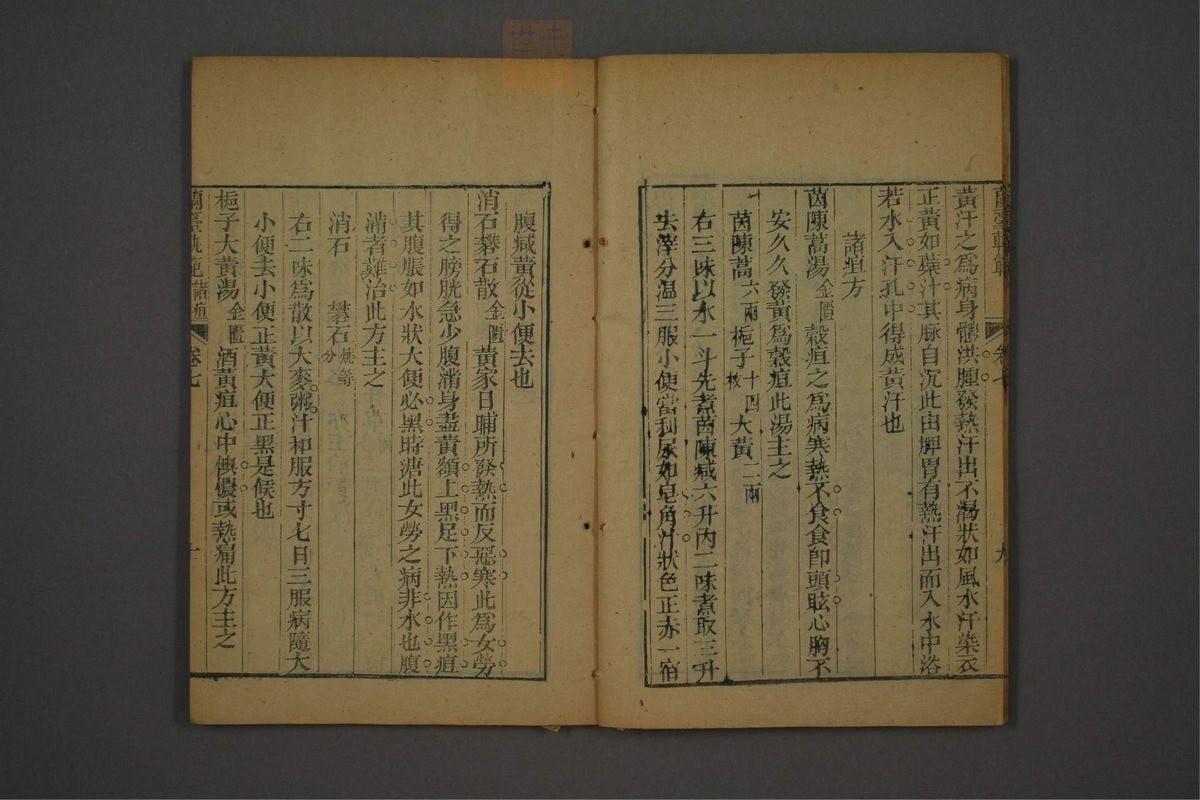 蘭臺軌範
卷七
九
黃汗之爲病身體洪腫發熱汗出不渴狀如風水汗染衣
正黃如蘗汁其脉自沉此由脾胃有熱汗出而入水中浴
若水入汗孔中得成黃汗也
諸疸方
茵陳蒿湯金匱 穀疸之爲病寒熱不食食卽頭眩心胸不
安久久發黃爲穀疸此湯主之
茵陳蒿六兩 梔子十四枚 大黃二兩
右三味以水一斗先煮茵陳減六升內二味煮取三升
去滓分温三服小便當利尿如皂角汁狀色正赤一宿
腹減黃從小便去也
消石礬石散金匱 黃家日晡所發熱而反惡寒此爲女勞
得之膀胱急少腹滿身盡黃額上黑足下熱因作黑疸
其腹脹如水狀大便必黑時溏此女勞之病非水也腹
滿者難治此方主之
消石 礬石燒等分
右二味爲散以大麥粥汁和服方寸匕日三服病隨大
小便去小便正黃大便正黑是候也
梔子大黃湯金匱 酒黃疸心中懊憹或熱痛此方主之
蘭臺軌範 諸疸
卷七
十